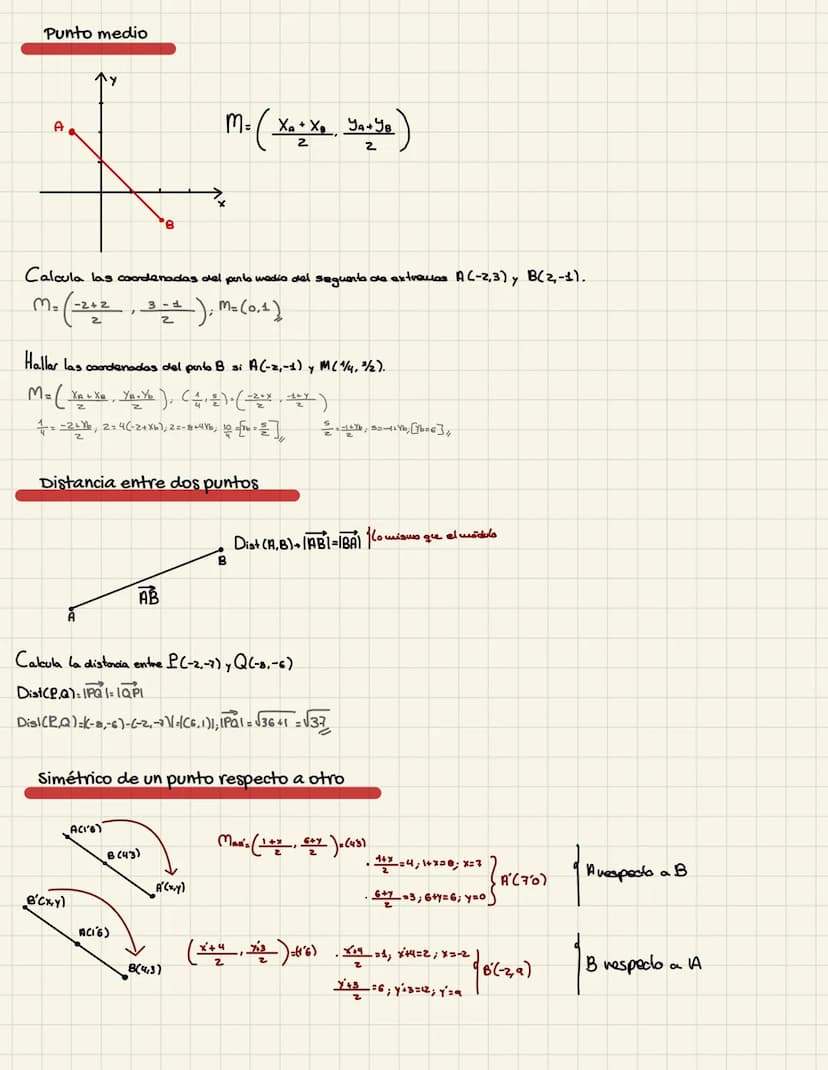 Punto medio
y
A
M=(XA+XB/2, yA+yB/2)
x
B
Calcula las coordenadas del punto medio del segmento de extremos A(-2,3) y B(2,-1).
M=(-2+2/2, 3-1/2); M=(0,1)
Hallar las coordenadas del punto B si A(-2,-1) y M(1/4, 5/2).
M=(XA+XB/2, YA+YB/2); (1/4, 5/2)=(-2+x/2, -1+y/2)
5/2=-1+Yb/2; 5=-1+Yb; [Yb=6]
Distancia entre dos puntos
Dist(A,B)=|AB|=|BA| lo mismo que el módulo
B
AB
A
Calcula la distancia entre P(-2,-7) y Q(-8,-6)
Dist(P,Q)=|PQ|=|QP|
Dist(P,Q)=|(-8,-6)-(-2,-7)|=|(6,1)|; |PQ|=√36+1=√37
Simétrico de un punto respecto a otro
A(1'6)
B(4'3)
A'(x,y)
MAA'=(1+x/2, 6+y/2)=(4'3)
· 1+x/2=4; 1+x=8; x=7
· 6+y/2=3; 6+y=6; y=0
A'(7'0)
A respecto a B
B'(x,y)
A(1'6)
B(4,3)
(x'+4/2, y'+3/2)=(1'6)
· x'+4/2=1; x'+4=2; x=-2
y'+3/2=6; y'+3=12; y'=9
B'(-2,9)
B respecto a A